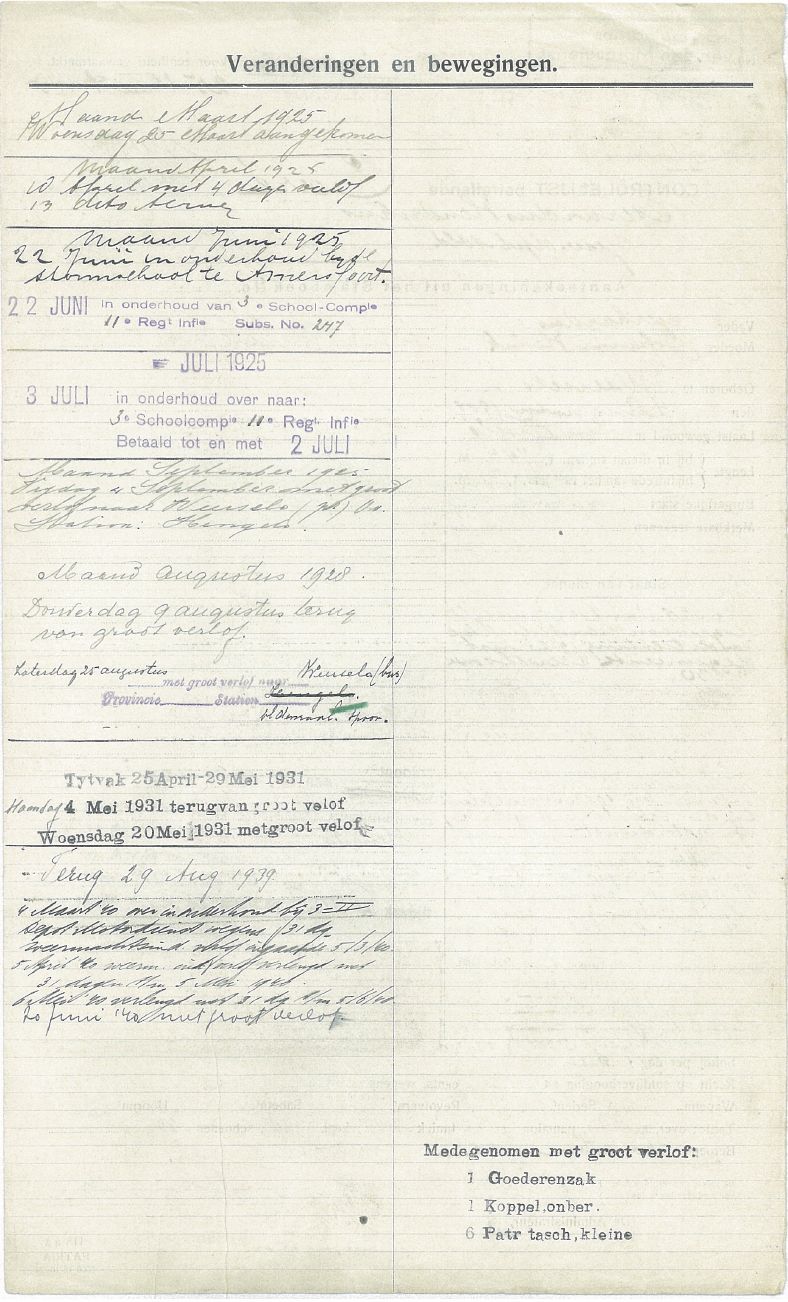 Veranderingen en bewegingen.
Maand Maart 1925
Woensdag 25 Maart aangekomen
Maand April 1925
10 April met 4 dagen verlof
13 dito terug
Maand Juni 1925
22 Juni in onderhoud bij de
stormschool te Amersfoort.
22 JUNI in onderhoud van 3e School-Compie
11e Regt Infie Subs. No. 247
JULI 1925
3 JULI in onderhoud over naar:
3e Schoolcompie 11e Regt. Infie
Betaald tot en met 2 JULI
Maand September 1925
Vrijdag 4 September met groot
verlof naar Weuselo (pr) Ov.
Station: Hengelo.
Maand Augustus 1928.
Donderdag 9 augustus terug
van groot verlof.
Zaterdag 25 augustus
met groot verlof naar Weuselo (
Provincie Station Hengelo.
Oldenzaal. spoor.
Tytvak 25 April-29 Mei 1931
Maandag 4 Mei 1931 terugvan groot velof
Woensdag 20 Mei 1931 metgroot velof
Terug 29 Aug 1939
4 Maart 40 over in onderhoud bij 3-II
Depot Motordienst wegens 31 dg
verlof ingaande 5/3/40.
5 April 40 verlof verlengd met
31 dagen t/m 5 Mei 1940.
6 Mei 40 verlengd met 31 dg t/m 5/6/40
20 Juni '40 met groot verlof.
Medegenomen met groot verlof:
1 Goederenzak
1 Koppel.onber.
6 Patr tasch,kleine